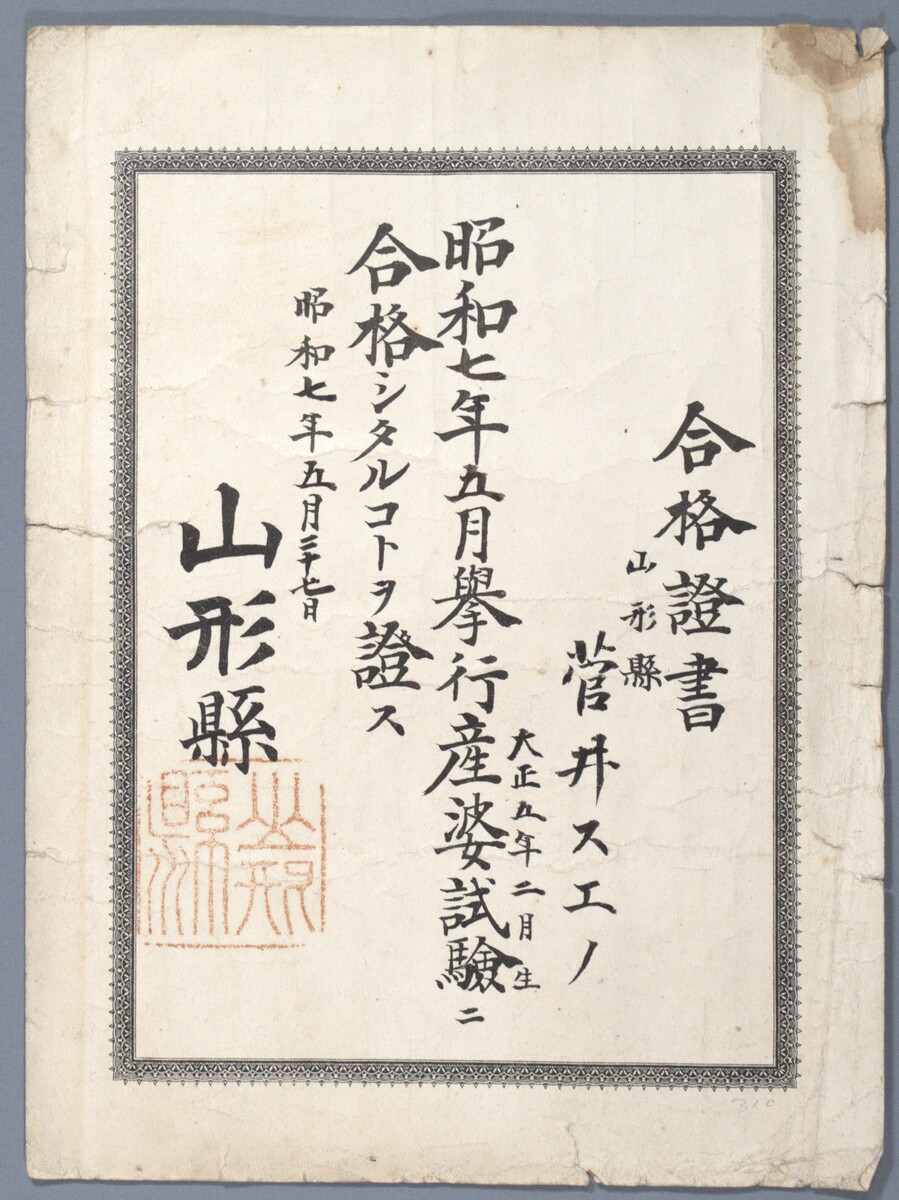 合格證書
山形縣
菅井スエノ
大正五年二月生
昭和七年五月擧行産婆試驗ニ
合格シタルコトヲ證ス
昭和七年五月二十七日
山形縣
310